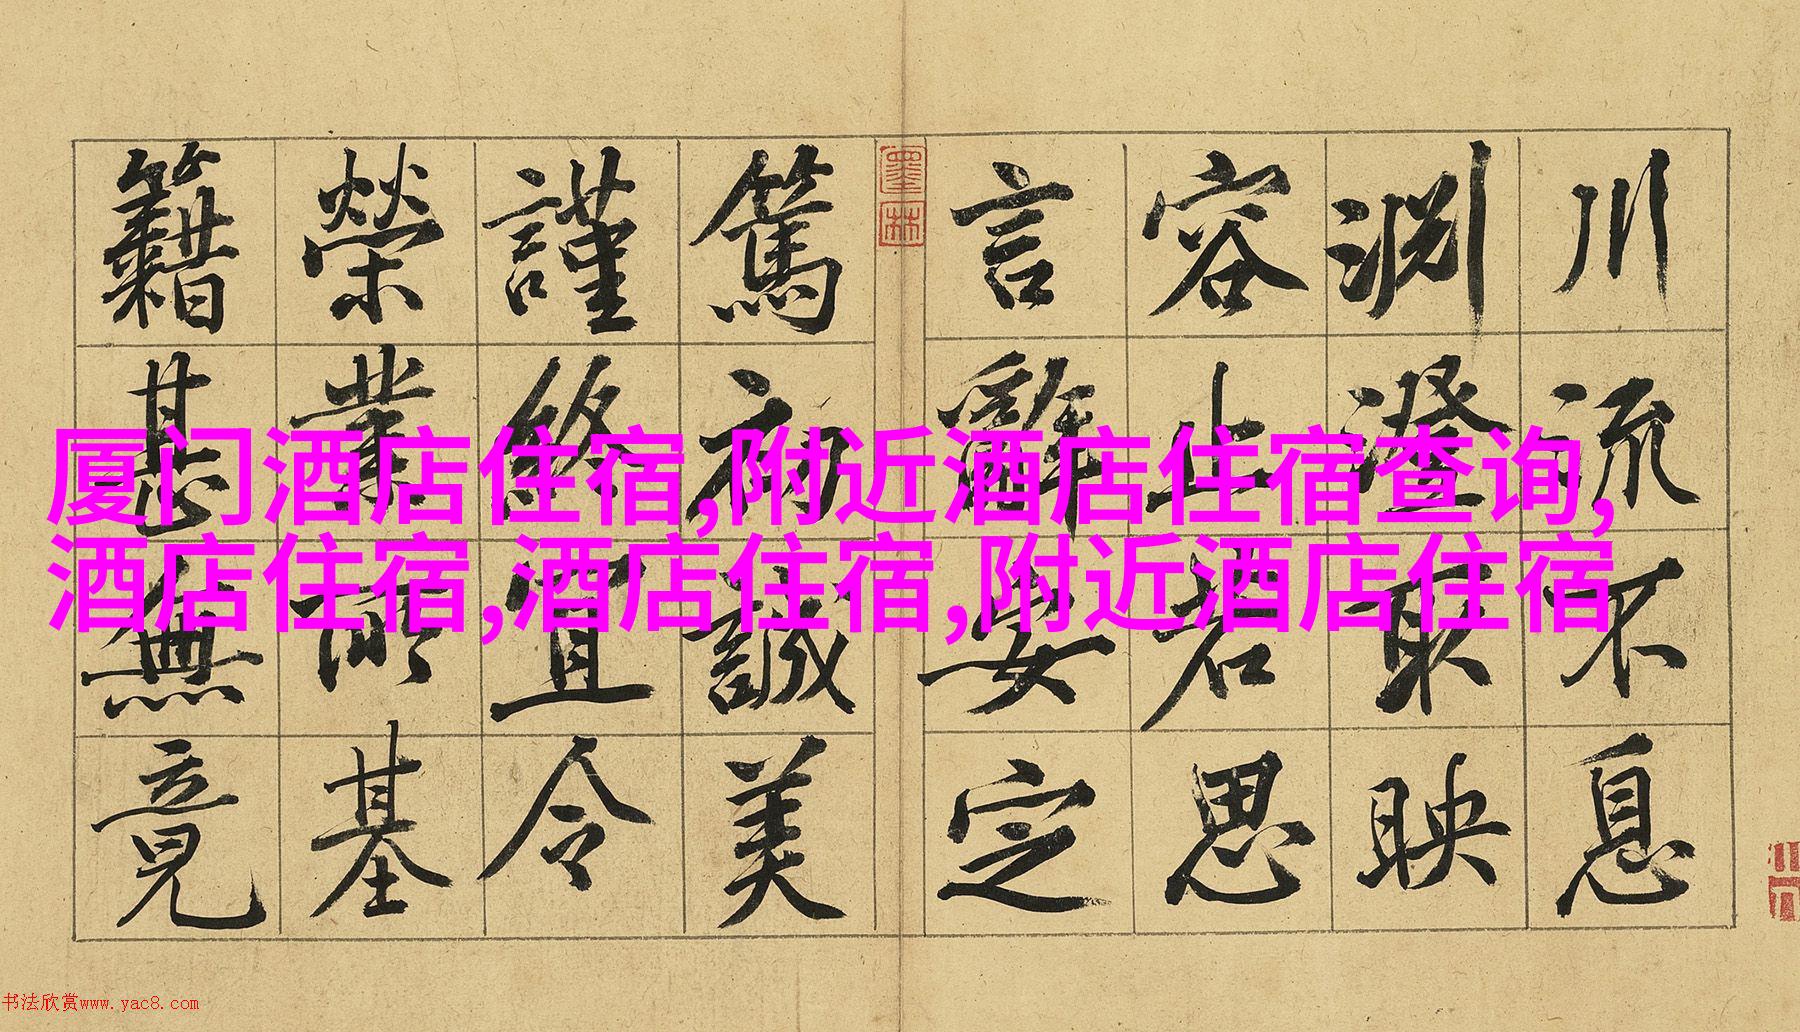 川流不息
淵澄取映
容止若思
言辭安定
墨
林
篤初誠美
謹終宜令
榮業所基
籍甚無竟
厦门酒店住宿,附近酒店住宿查询,
酒店住宿,酒店住宿,附近酒店住宿
书法欣赏www.yac8.com